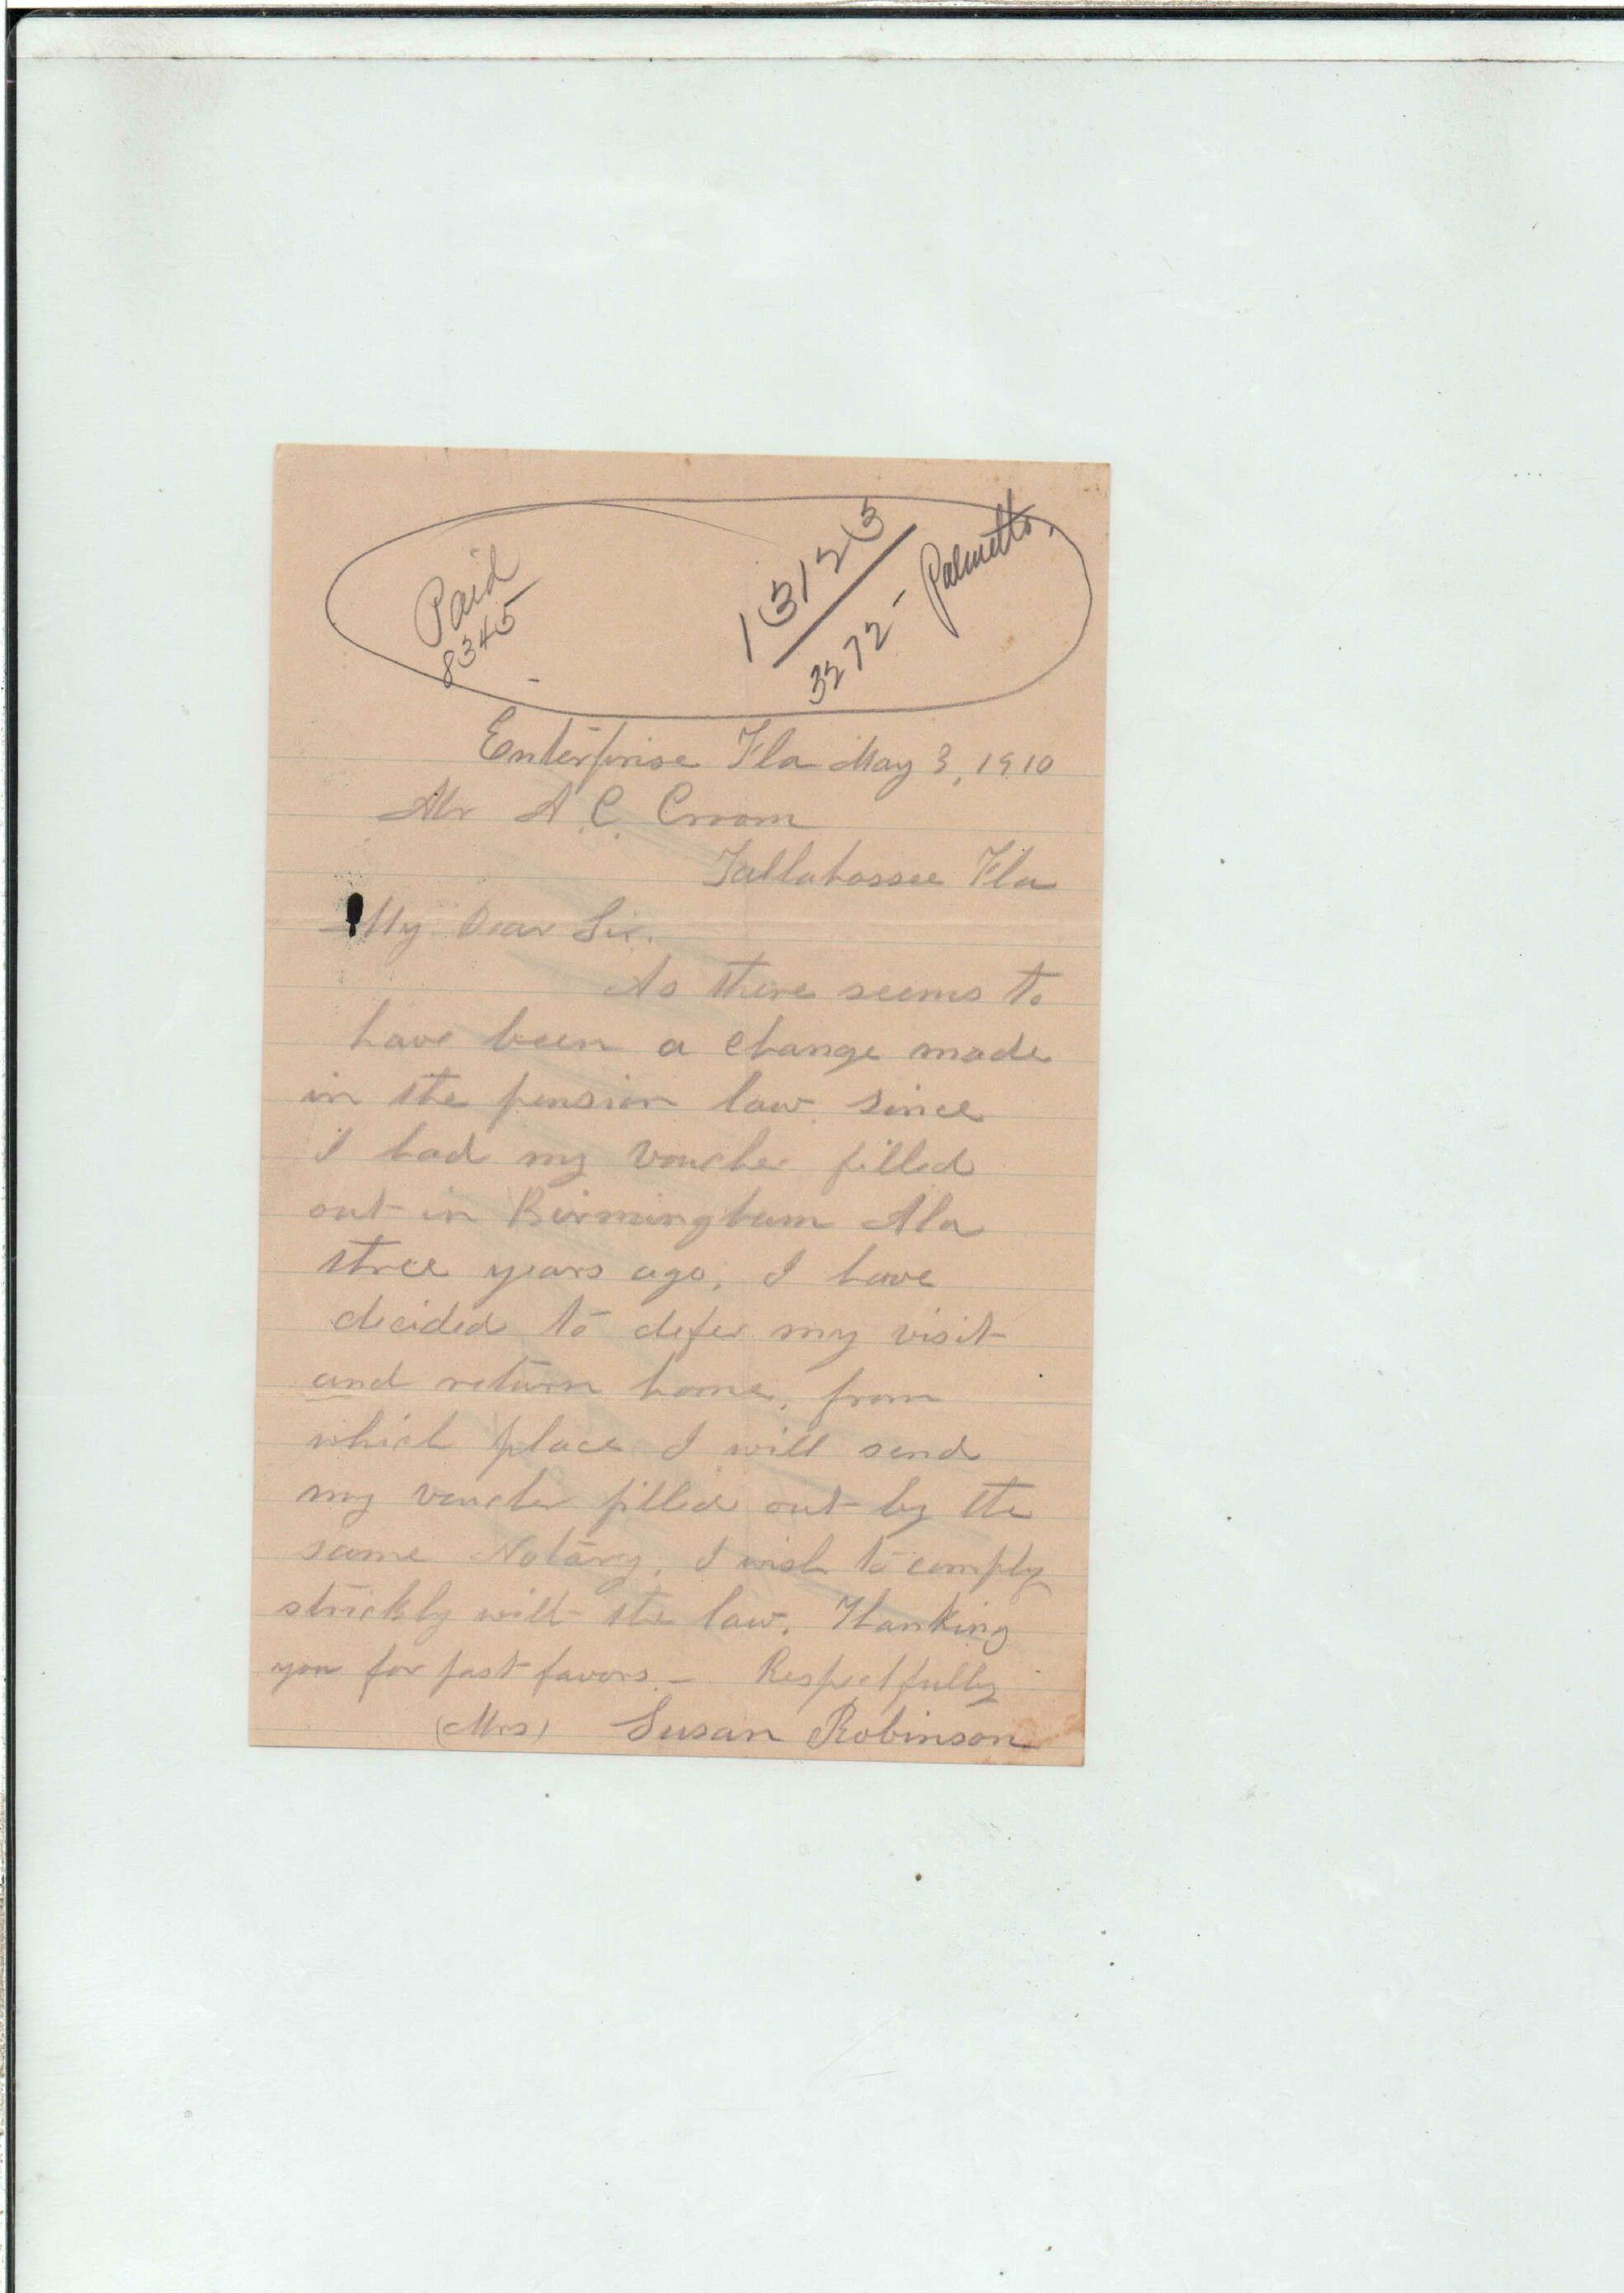 Paid
8345
13123
3272 - Palmetto.
Enterprise Fla May 3, 1910
Mr A. C. Croom
Tallahassee Fla
My Dear Sir.
As there seems to
have been a change made
in the pension law since
I had my voucher filled
out in Birmingham Ala
three years ago, I have
decided to defer my visit
and return home, from
which place I will send
my voucher filled out by the
same Notary. I wish to comply
strickly with the law. Thanking
you for past favors. - Respectfully
(Mrs) Susan Robinson